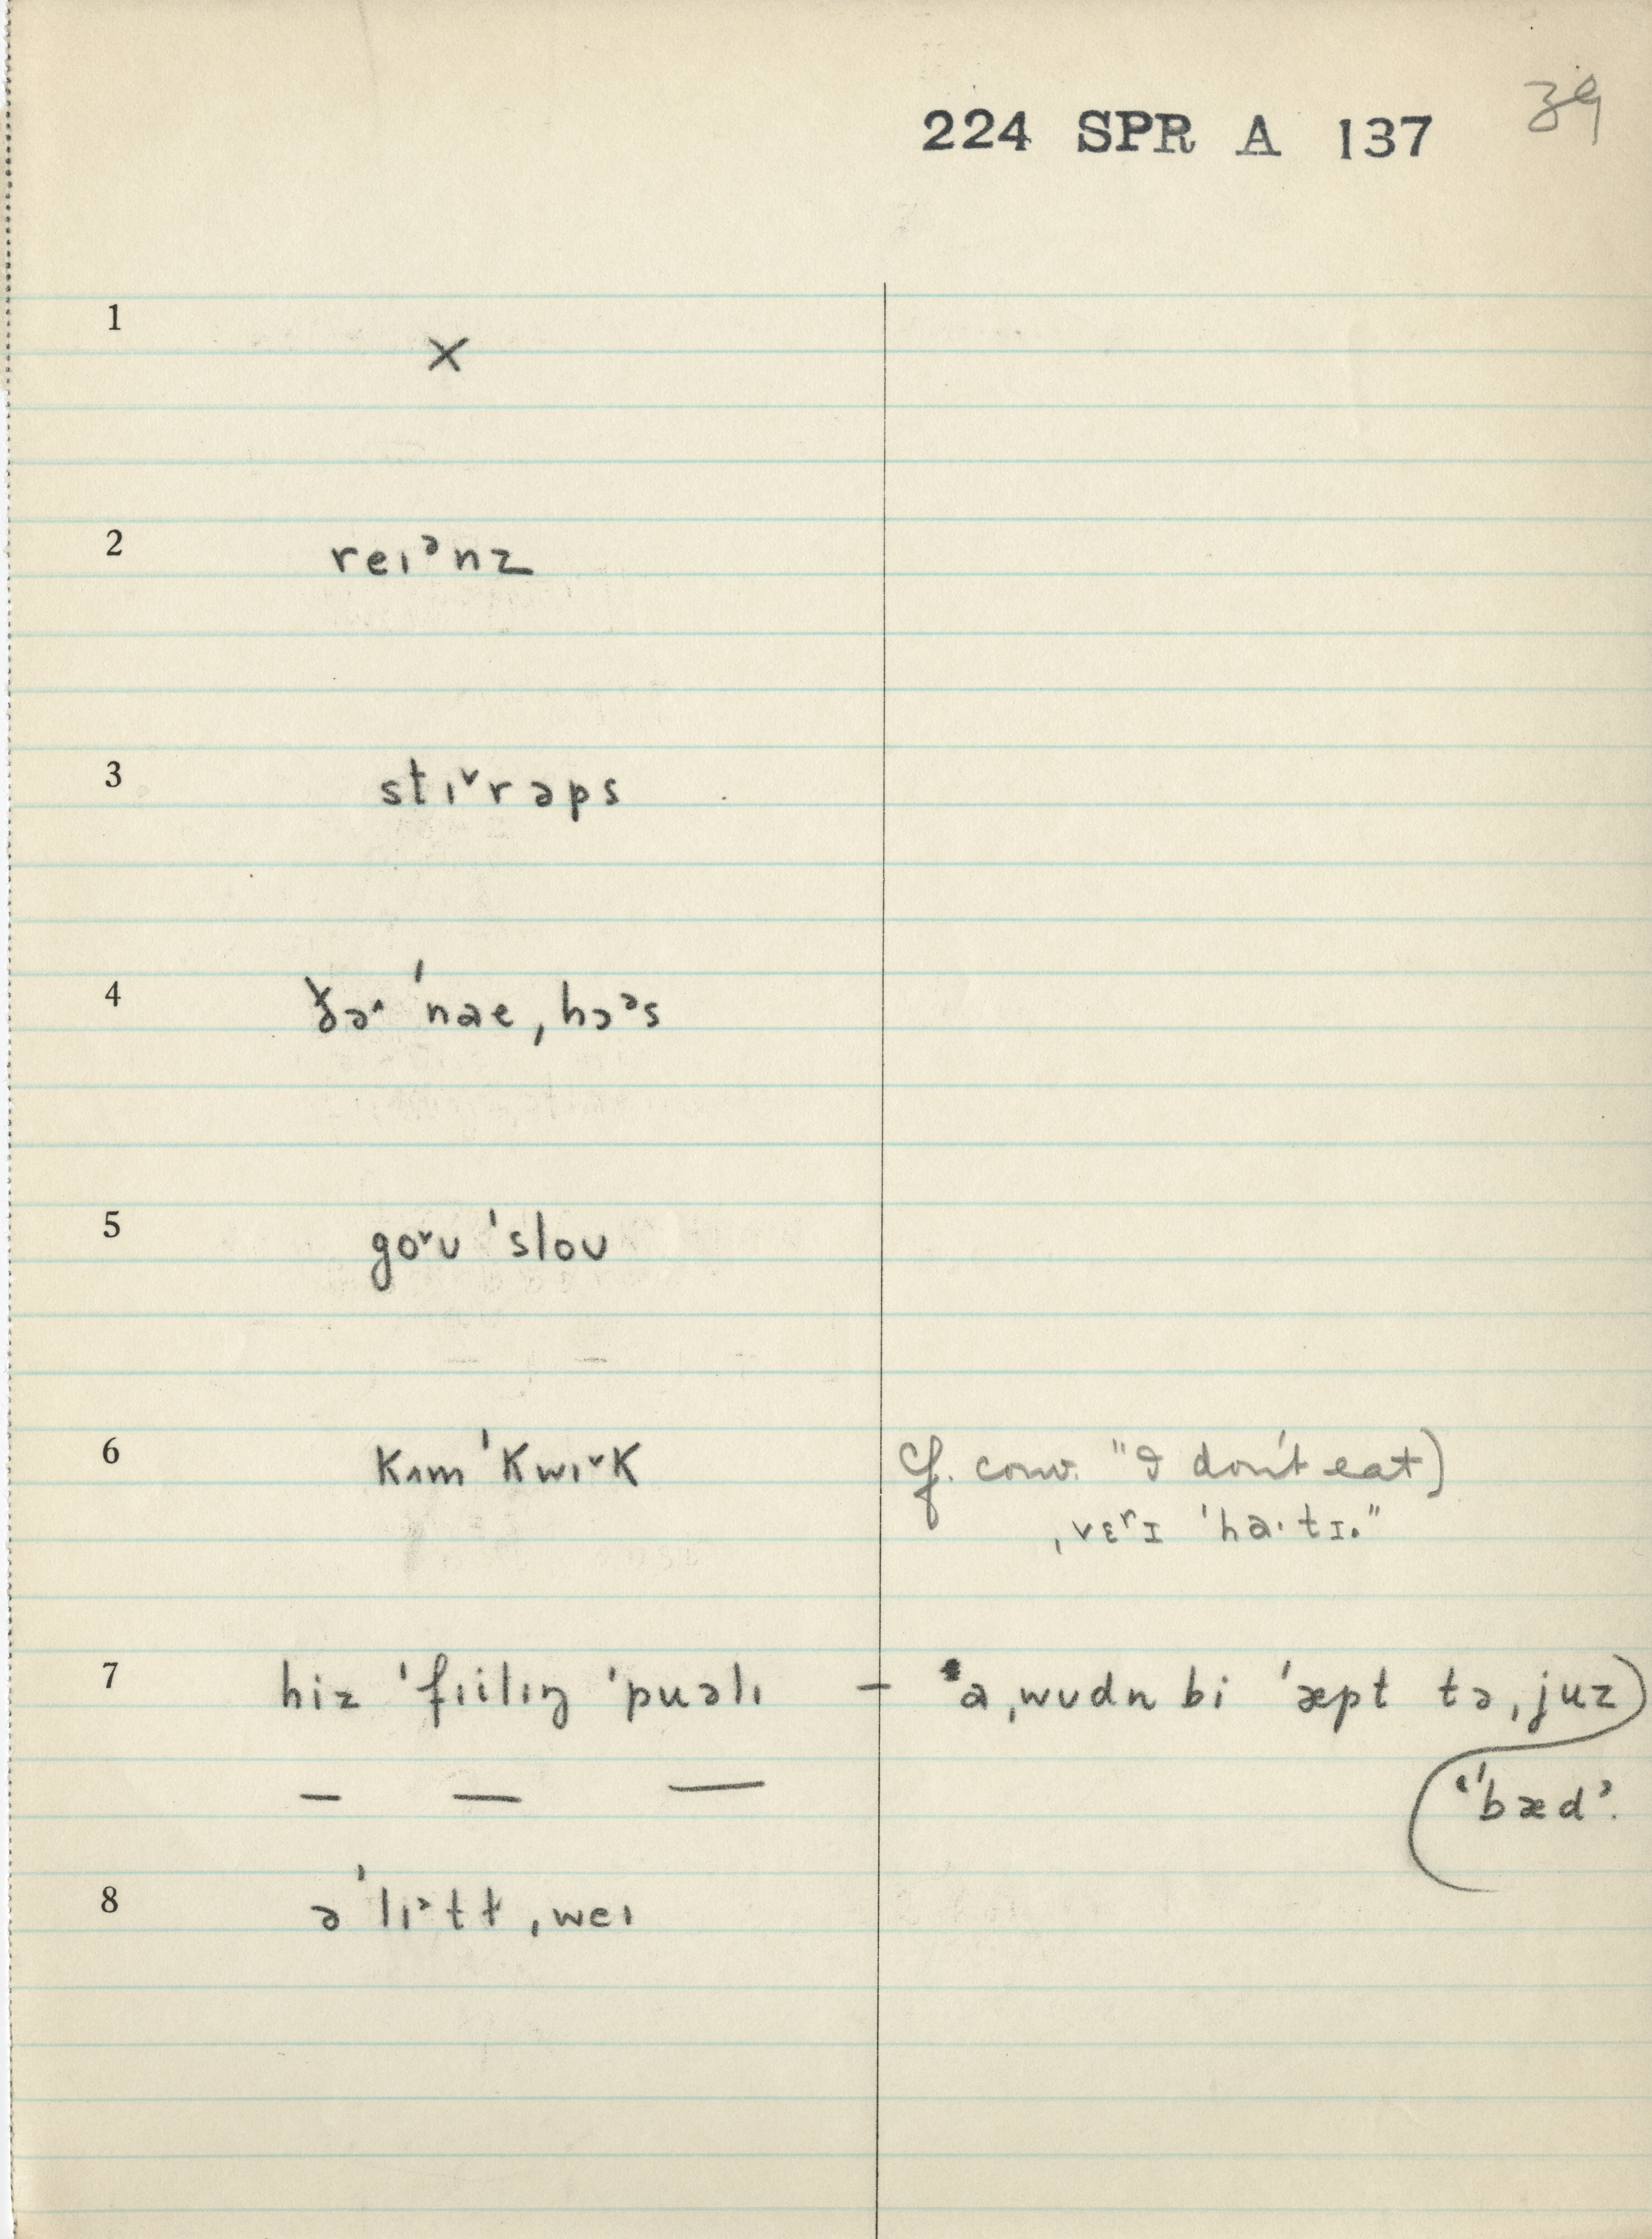 39
224 SPR A 137
1 ×
2 reɪᵊnz
3 stɪ˅rəps
4 ðə˄ ˈnae ˌhɔᵊs
5 go˅ʊ ˈsloʊ
6 kʌm ˈkwɪ˅k cf. conv. "I don't eat
ˌvɛrɪ ˈha·tɪ."
7 hiz ˈfɪilɪŋ ˈpuəlɪ – "a ˌwʊdn bi ˈæpt tə ˌjuz
"ˈbæd".
— — —
8 ə ˈlɪ˃tɫ ˌweɪ